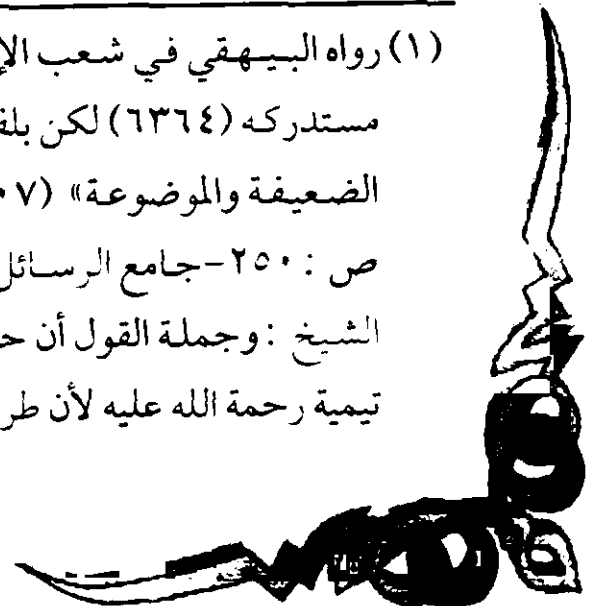 (١) رواه البيهقي في شعب
مستدركه (٦٣٦٤) لكن
الضعيفة والموضوعة»
ص : ٢٥٠-جامع الرسائل
الشيخ : وجملة القول أن
تيمية رحمة الله عليه لأن